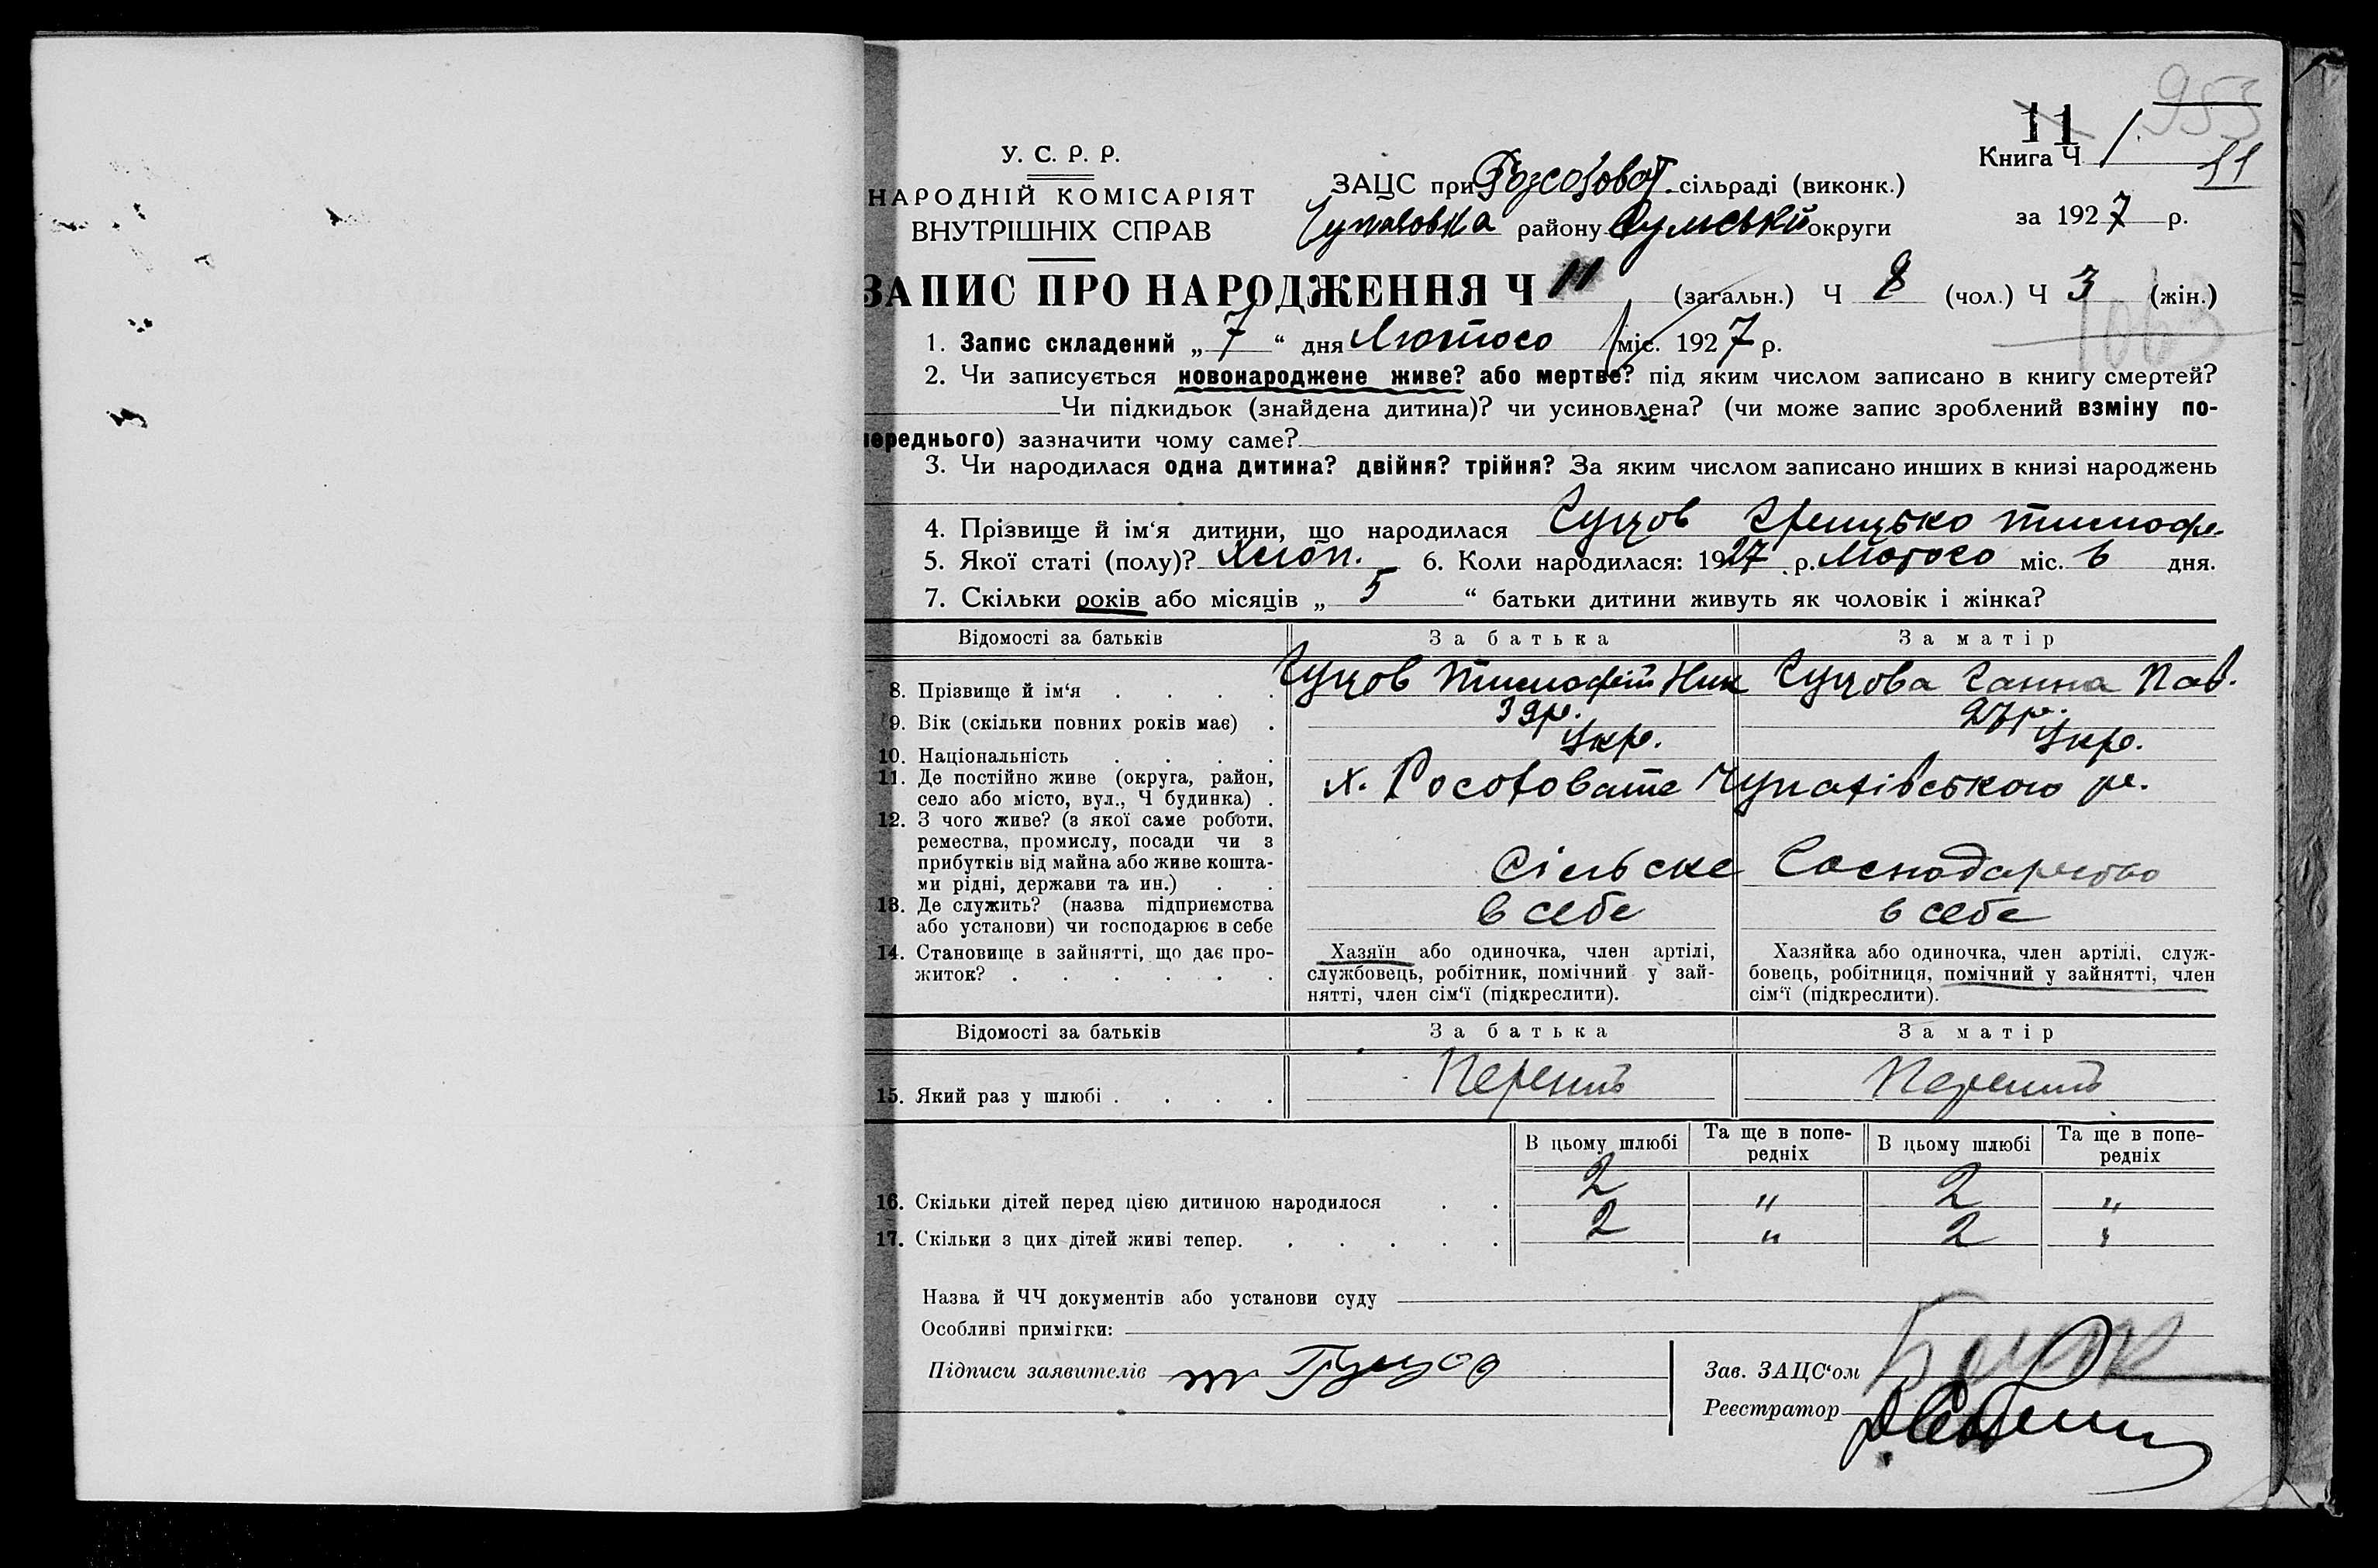 953
11
У. С. Р. Р.
Книга Ч 1
11
НАРОДНІЙ КОМІСАРІЯТ
ЗАЦС при Розсоховат. сільраді (виконк.)
ВНУТРІШНІХ СПРАВ
Чупаховка району Сумській округи
за 1927 р.
ЗАПИС ПРО НАРОДЖЕННЯ Ч 11 (загальн.) Ч 8 (чол.) Ч 3 (жін.)
1063
1. Запис складений „ 7 “ дня Лютого міс. 1927 р.
2. Чи записується новонароджене живе? або мертве? під яким числом записано в книгу смертей?
Чи підкидьок (знайдена дитина)? чи усиновлена? (чи може запис зроблений взміну по-
переднього) зазначити чому саме?
3. Чи народилася одна дитина? двійня? трійня? За яким числом записано инших в книзі народжень
4. Прізвище й ім‘я дитини, що народилася Гуцов Грицько Тимофе.
5. Якої статі (полу)? Хлоп. 6. Коли народилася: 1927 р. Лютого міс. 6 дня.
7. Скільки років або місяців „ 5 “ батьки дитини живуть як чоловік і жінка?
Відомості за батьків За батька За матір
8. Прізвище й ім‘я . . . . Гуцов Тимофій Ник Гуцова Ганна Пав.
9. Вік (скільки повних років має) . 39р. 27р.
10. Національність . . . . Укр. Укр.
11. Де постійно живе (округа, район,
село або місто, вул., Ч будинка) . х. Росоховате Чупахівського р.
12. З чого живе? (з якої саме роботи,
ремества, промислу, посади чи з
прибутків від майна або живе кошта-
ми рідні, держави та ин.) . . Сільске Господарство
13. Де служить? (назва підприємства
або установи) чи господарює в себе в себе в себе
14. Становище в зайнятті, що дає про-
житок? . . . . . .
Хазяїн або одиночка, член артілі,
службовець, робітник, помічний у зай-
нятті, член сім‘ї (підкреслити).
Хазяйка або одиночка, член артілі, служ-
бовець, робітниця, помічний у зайнятті, член
сім‘ї (підкреслити).
Відомості за батьків За батька За матір
15. Який раз у шлюбі . . . . Перший Перший
В цьому шлюбі Та ще в попе- В цьому шлюбі Та ще в попе-
редніх редніх
16. Скільки дітей перед цією дитиною народилося . . 2 „ 2 „
17. Скільки з цих дітей живі тепер. . . . . . 2 „ 2 „
Назва й ЧЧ документів або установи суду
Особливі примітки:
Підписи заявителів т Гуцов
Зав. ЗАЦС‘ом
Реєстратор